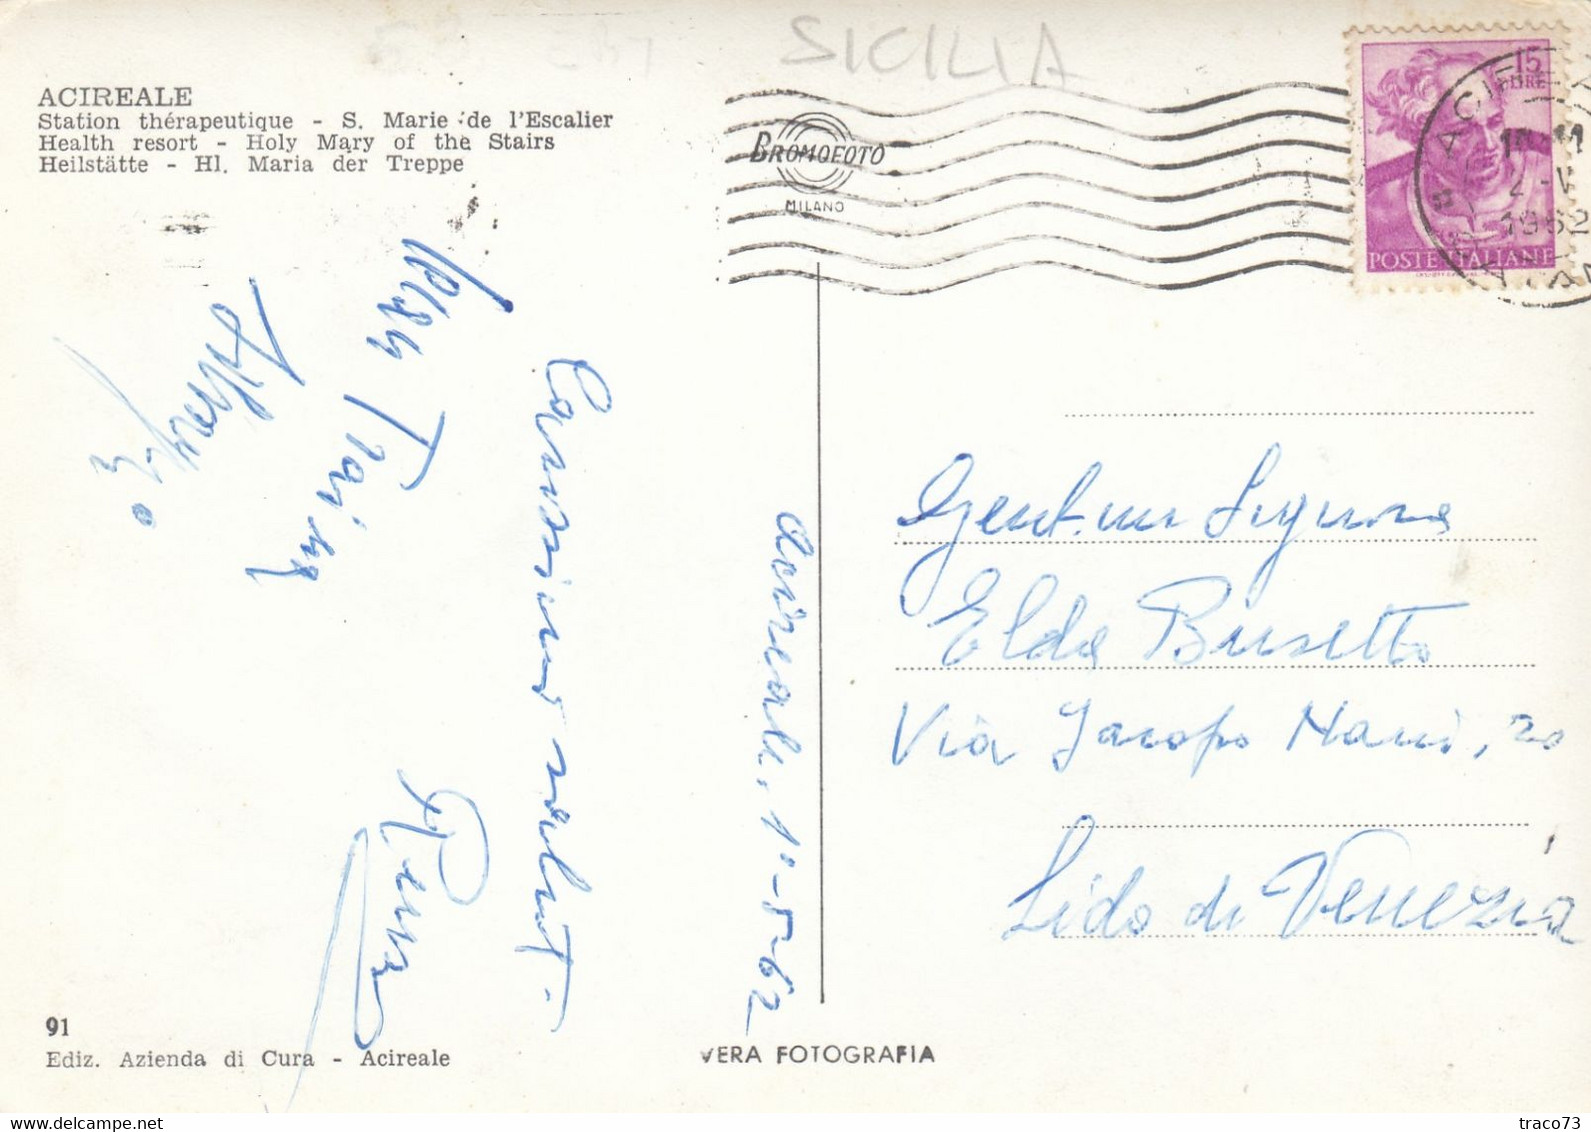 SICILIA
ACIREALE
Station thérapeutique - S. Marie de l'Escalier
Health resort - Holy Mary of the Stairs
Heilstätte - Hl. Maria der Treppe
BROMOFOTO
MILANO
15
LIRE
POSTE ITALIANE
1962
Carissimi saluti.
Acireale, 1°-5-62
Gent.ma Signora
Elda Busetto
Via Jacopo Nani, 20
Lido di Venezia
91
Ediz. Azienda di Cura - Acireale
VERA FOTOGRAFIA
traco73